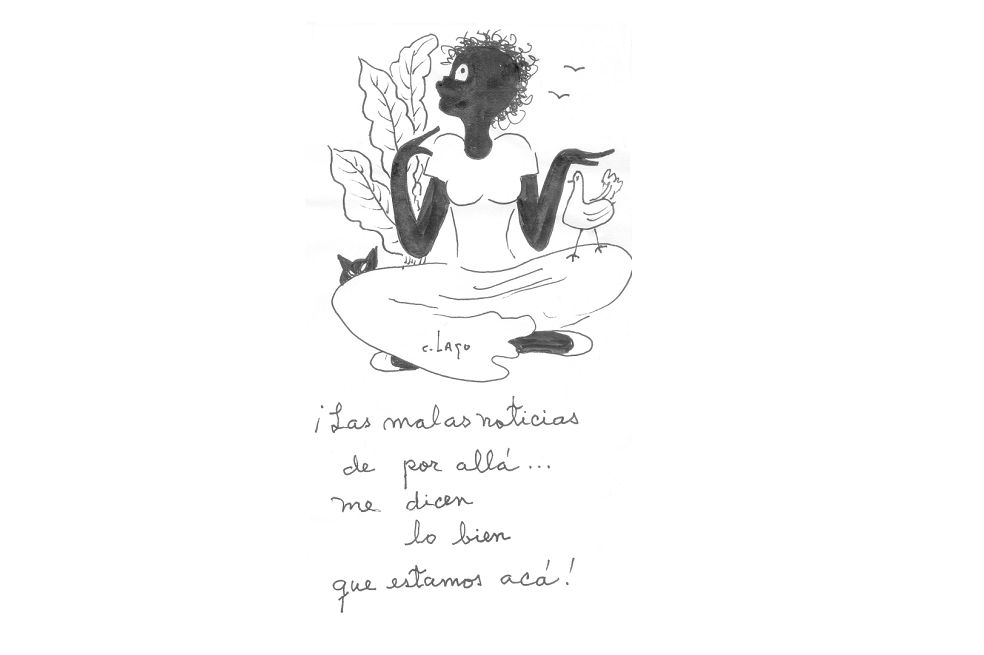 c. Lago
¡Las malas noticias
de por allá...
me dicen
lo bien
que estamos acá!